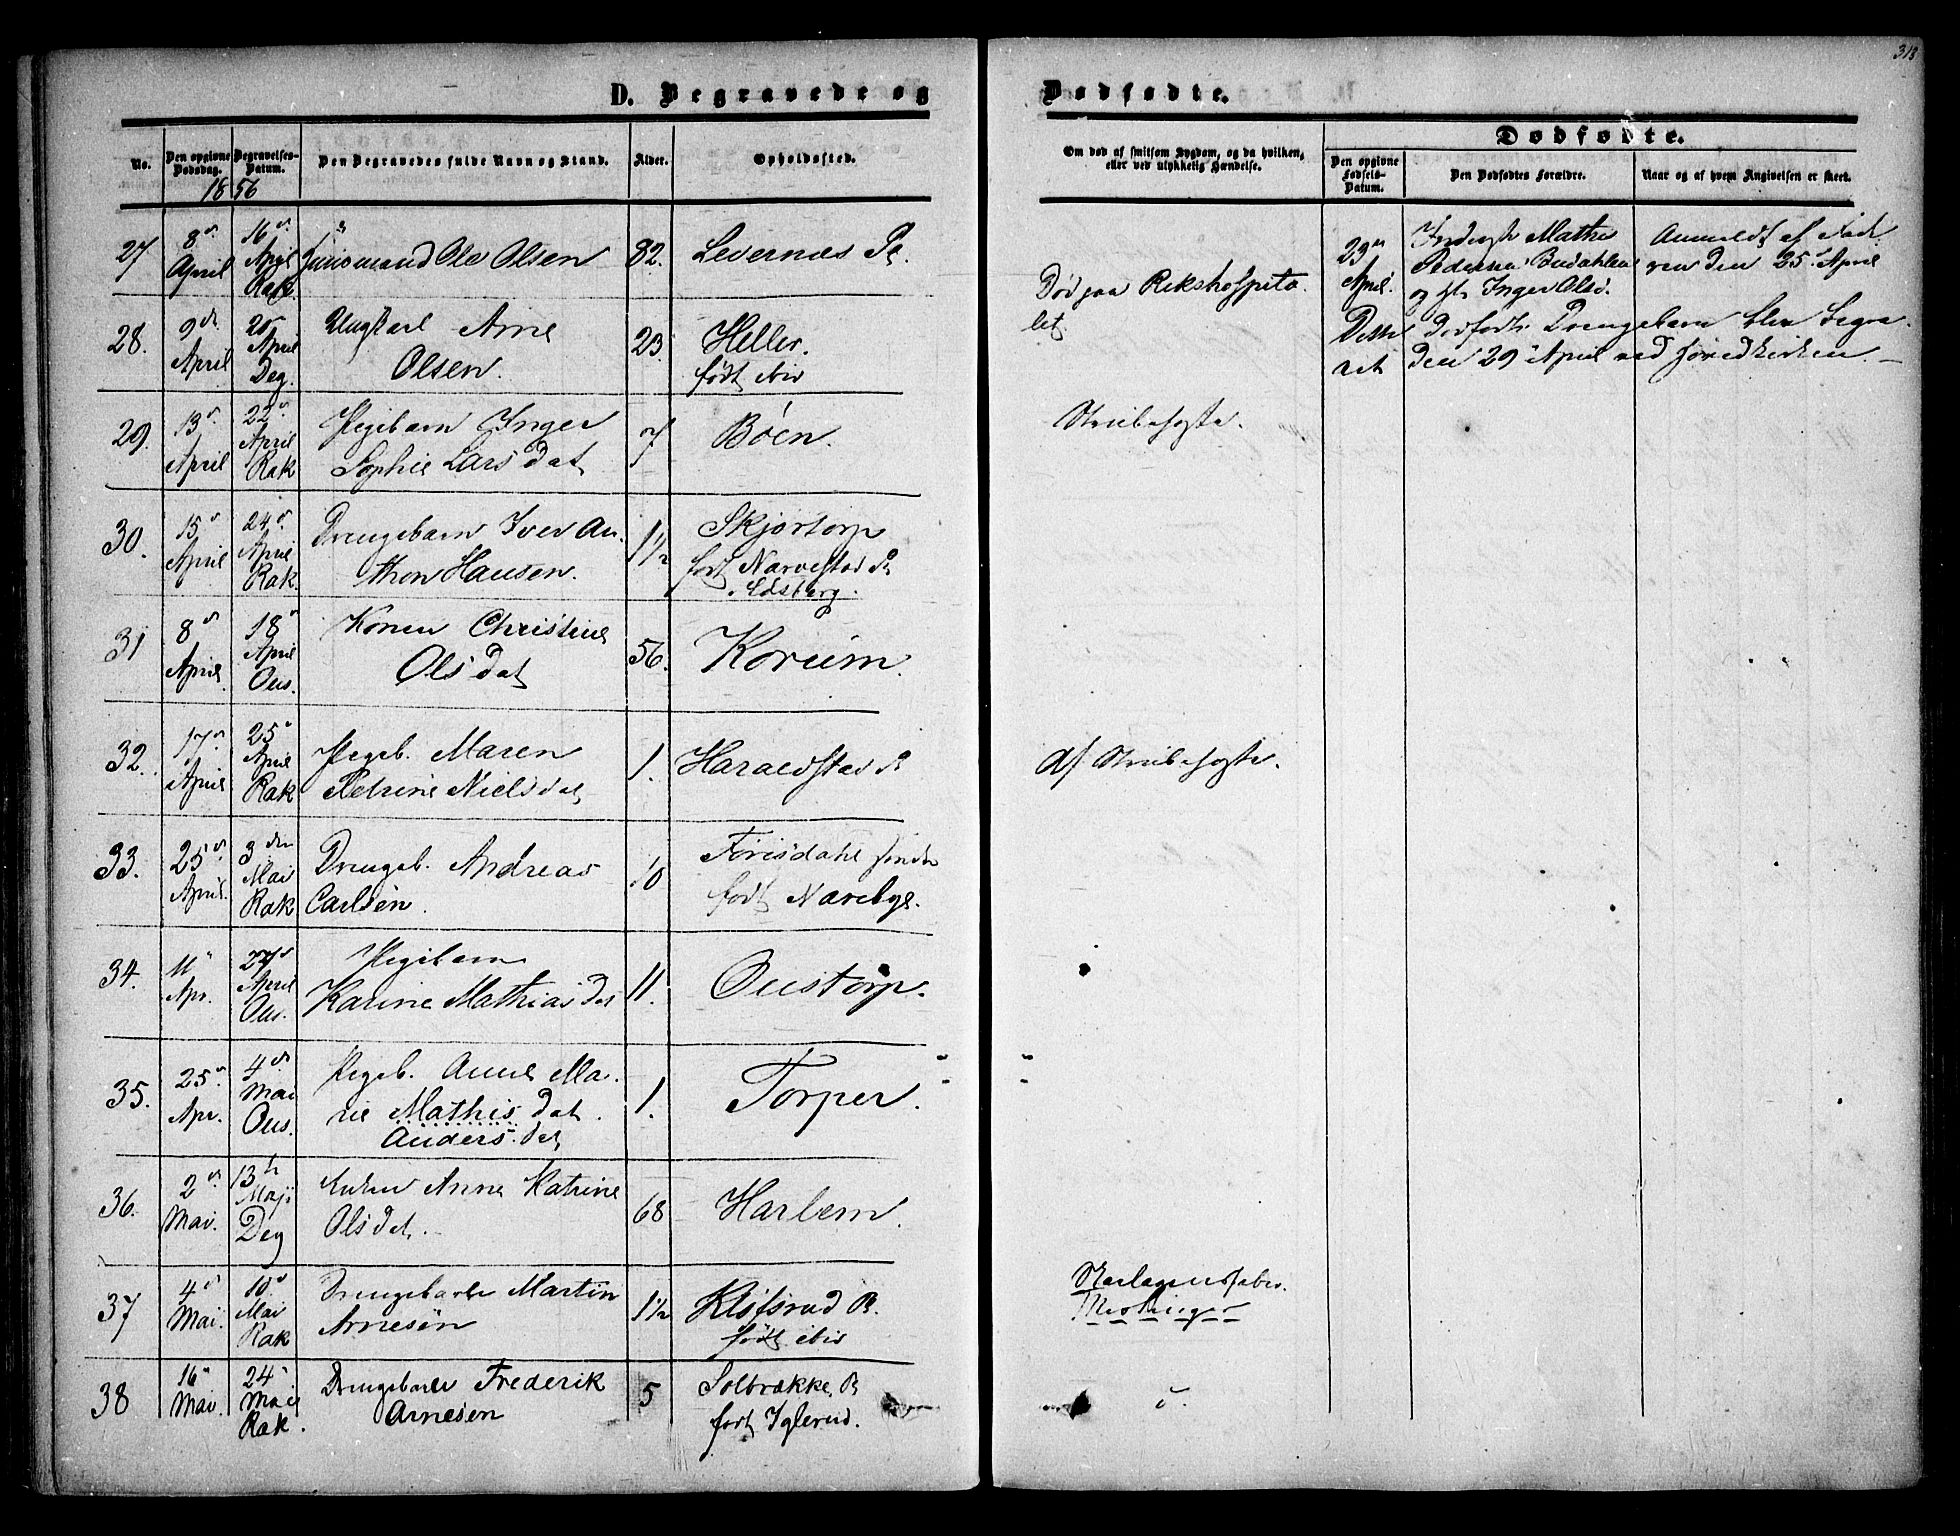 313
D. Begravede og Dødfødte.
No.
Den opgivne Dødsdag.
Begravelses-Datum.
Den Begravedes fulde Navn og Stand.
Alder.
Opholdssted.
Om død af smitsom Sygdom, og da hvilken,
eller ved ulykkelig Hændelse.
Dødfødte.
Den opgivne Fødsels-Datum.
Den Dødfødtes Forældre.
Naar og af hvem Angivelsen er skeet.
1856
27 8de April 16de April Rak Ole Olsen 82. Levernæs
28. 9de April 25 April Deg. Ungkarl Arne
Olsen. 23. Heller.
født ibid
Død paa Rikshospita
let
29. 13de April 22de April Rak Pigebarn Inger
Sophie Larsdat 7 Bøen.
Strubehoste.
30. 15de April 24de April Rak. Drengebarn Iver An
thon Hansen. 1½ Skjørtorp
født Narvestad
Edsberg.
31 8de April 18de April Ous. Konen Christine
Olsdat 56. Korum.
32. 17de April 25de April Rak Pigeb. Maren
Petrine Nielsdat 1. Haraldstad
Af Strubehoste.
33. 25de April. 3den Mai Rak Drengeb. Andreas
Carlsen. 10 Forisdahl
født Narebye.
34. 11 Apr. 27de April Ous. Pigebarn
Karine Mathiasdat 11. Oustorp.
35. 25de Apr. 4de Mai Ous. Pigeb. Anne Ma
rie Mathisdat.
Andersdat 1. Torper.
36. 2de Mai. 13de Maji Deg Enken Anne Katrine
Olsdat. 68 Harlem.
37 4de Mai. 10de Mai Rak Drengebarn Martin
Arnesen 1½ Klofsrud
født ibid
Skarlagensfeber.
38 16de Mai. 24de Mai Rak. Drengebarn Frederik
Arnesen 5 Solbrække
født Iglerud.
29de April. Mathis
Pedersen Budahlen
og Inger Olsd.
Anmeldt af Fad
ren den 25 April
Dette dødfødte Drengebarn blev begra
vet den 29 April ved Hovedkirken